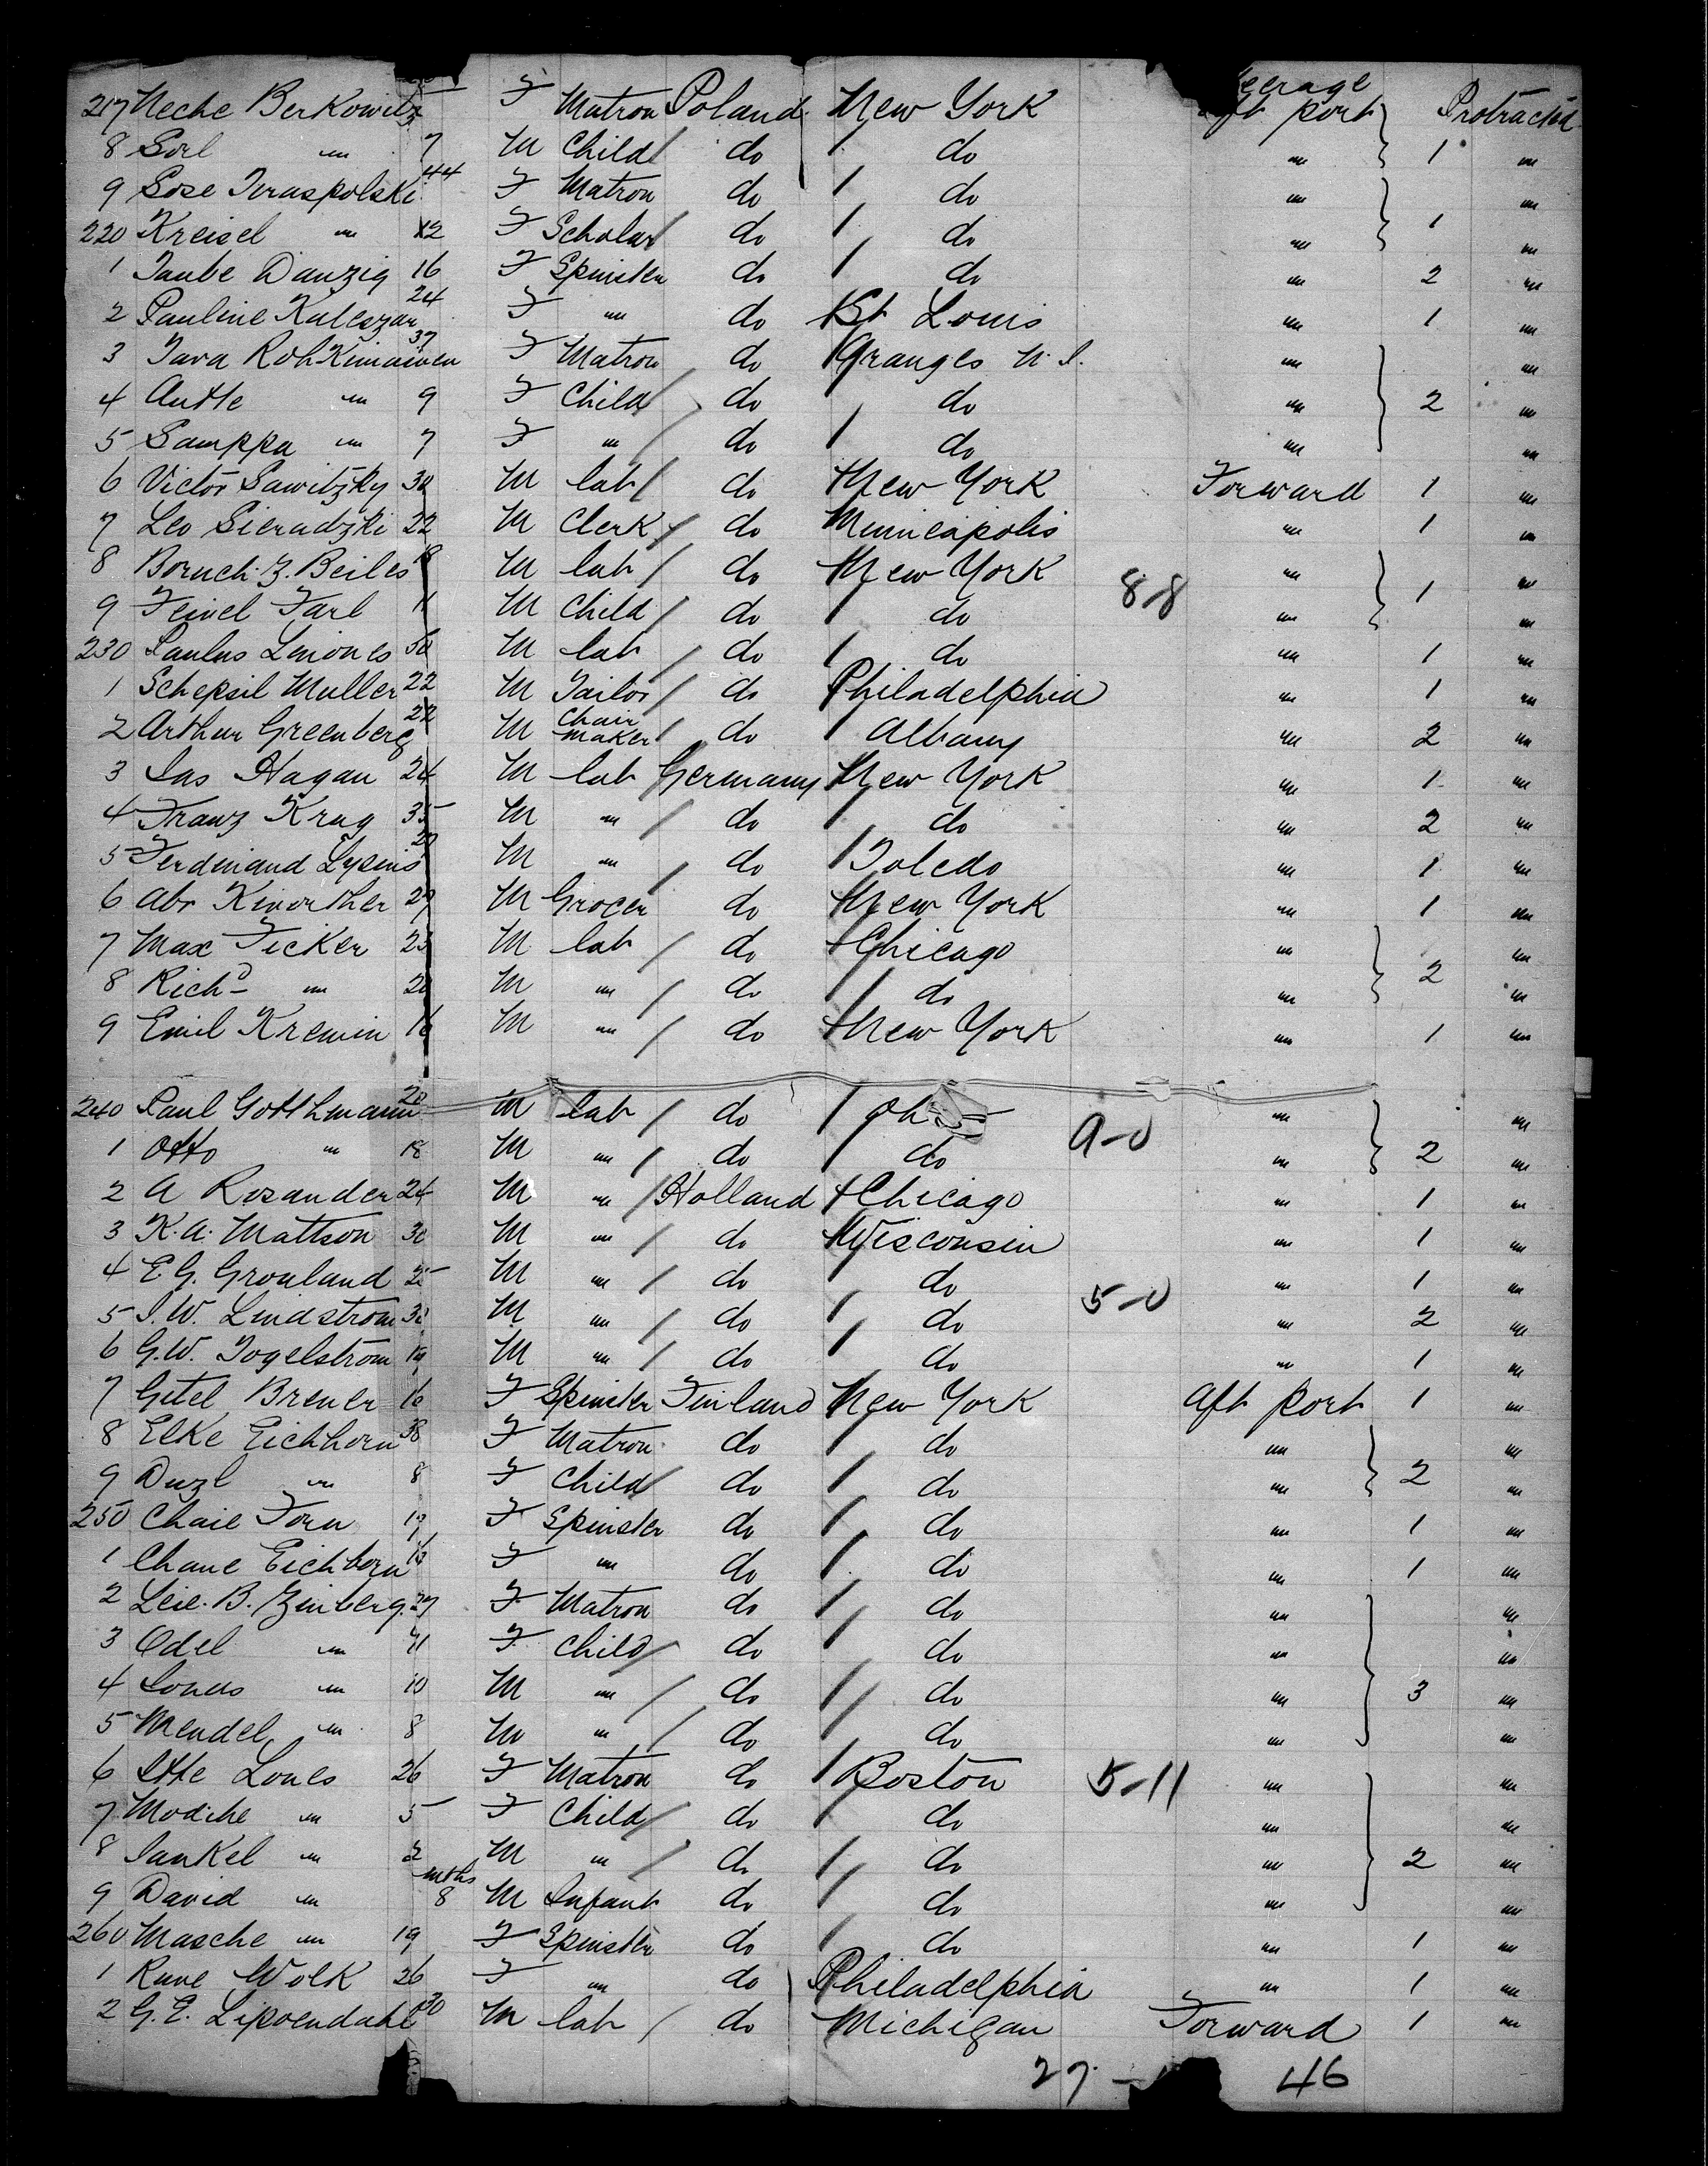 217 Neche Berkowitz F Matron Poland New York aft port Protracted
8 Sorl " 7 M Child do do " 1 "
9 Sose Tiraspolski 44 F Matron do do " "
220 Kreisel " 12 F Scholar do do " 1 "
1 Taube Danzig 16 F Spinster do do " 2 "
2 Pauline Kuleszar 24 F " do St Louis " 1 "
3 37 F Matron do " "
4 Antte " 9 F Child do do " 2 "
5 Samppa " 7 F " do do " "
6 Victor Sawitzky M lab do New York Forward 1 "
7 Leo Sieradzki 22 M Clerk do Minneapolis " 1 "
8 Boruch Z. Beiles 18 M lab do New York " "
9 Feivel Farl 11 M Child do do 8-8 " 1 "
230 M lab do do " 1 "
1 Schepsil Muller 22 M Tailor do Philadelphia " 1 "
2 Arthur Greenberg 22 M Chair maker do Albany " 2 "
3 Jas Hagan 24 M lab Germany New York " 1 "
4 Franz Krug 35 M " do do " 2 "
5 Ferdinand M " do Toledo " 1 "
6 Abr 29 M Grocer do New York " 1 "
7 Max Ficker 23 M lab do Chicago " "
8 Richd " 20 M " do do " 2 "
9 Emil Kremin 16 M " do New York " 1 "
240 Paul Gotthmann 20 M lab do " "
1 Otto " 18 M " do do " 2 "
2 A Rosander 24 M " Holland Chicago " 1 "
3 K.A. Mattson 30 M " do Wisconsin " 1 "
4 E.G. Gronland 25 M " do do " 1 "
5 J.W. Lindstrom M " do do " 2 "
6 G.W. Togelstrom 19 M " do do " 1 "
7 Gitel Brener 16 F Spinster Finland New York aft port 1 "
8 Elke Eichhorn 38 F Matron do do " "
9 " 8 F Child do do " 2 "
250 Chaie Forn 19 F Spinster do do " 1 "
1 Chane Eichhorn F " do do " 1 "
2 Leie. B. Zinberg 27 F Matron do do " "
3 Odel " 11 F Child do do " "
4 " 10 M " do do " 3 "
5 Mendel " 8 M " do do " "
6 Itte Lones 26 F Matron do Boston 5-11 " "
7 " 5 F Child do do " "
8 Jankel " M " do do " 2 "
9 David " mths 8 M Infant do do " "
260 Masche " 19 F Spinster do do " 1 "
1 Rune Wolk 26 F " do Philadelphia " 1 "
2 G.E. 30 M lab do Michigan Forward 1 "
27 46